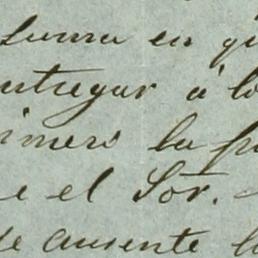 suma en qu
entregar á lo
imero la pr
e el Sor.
de ausente l